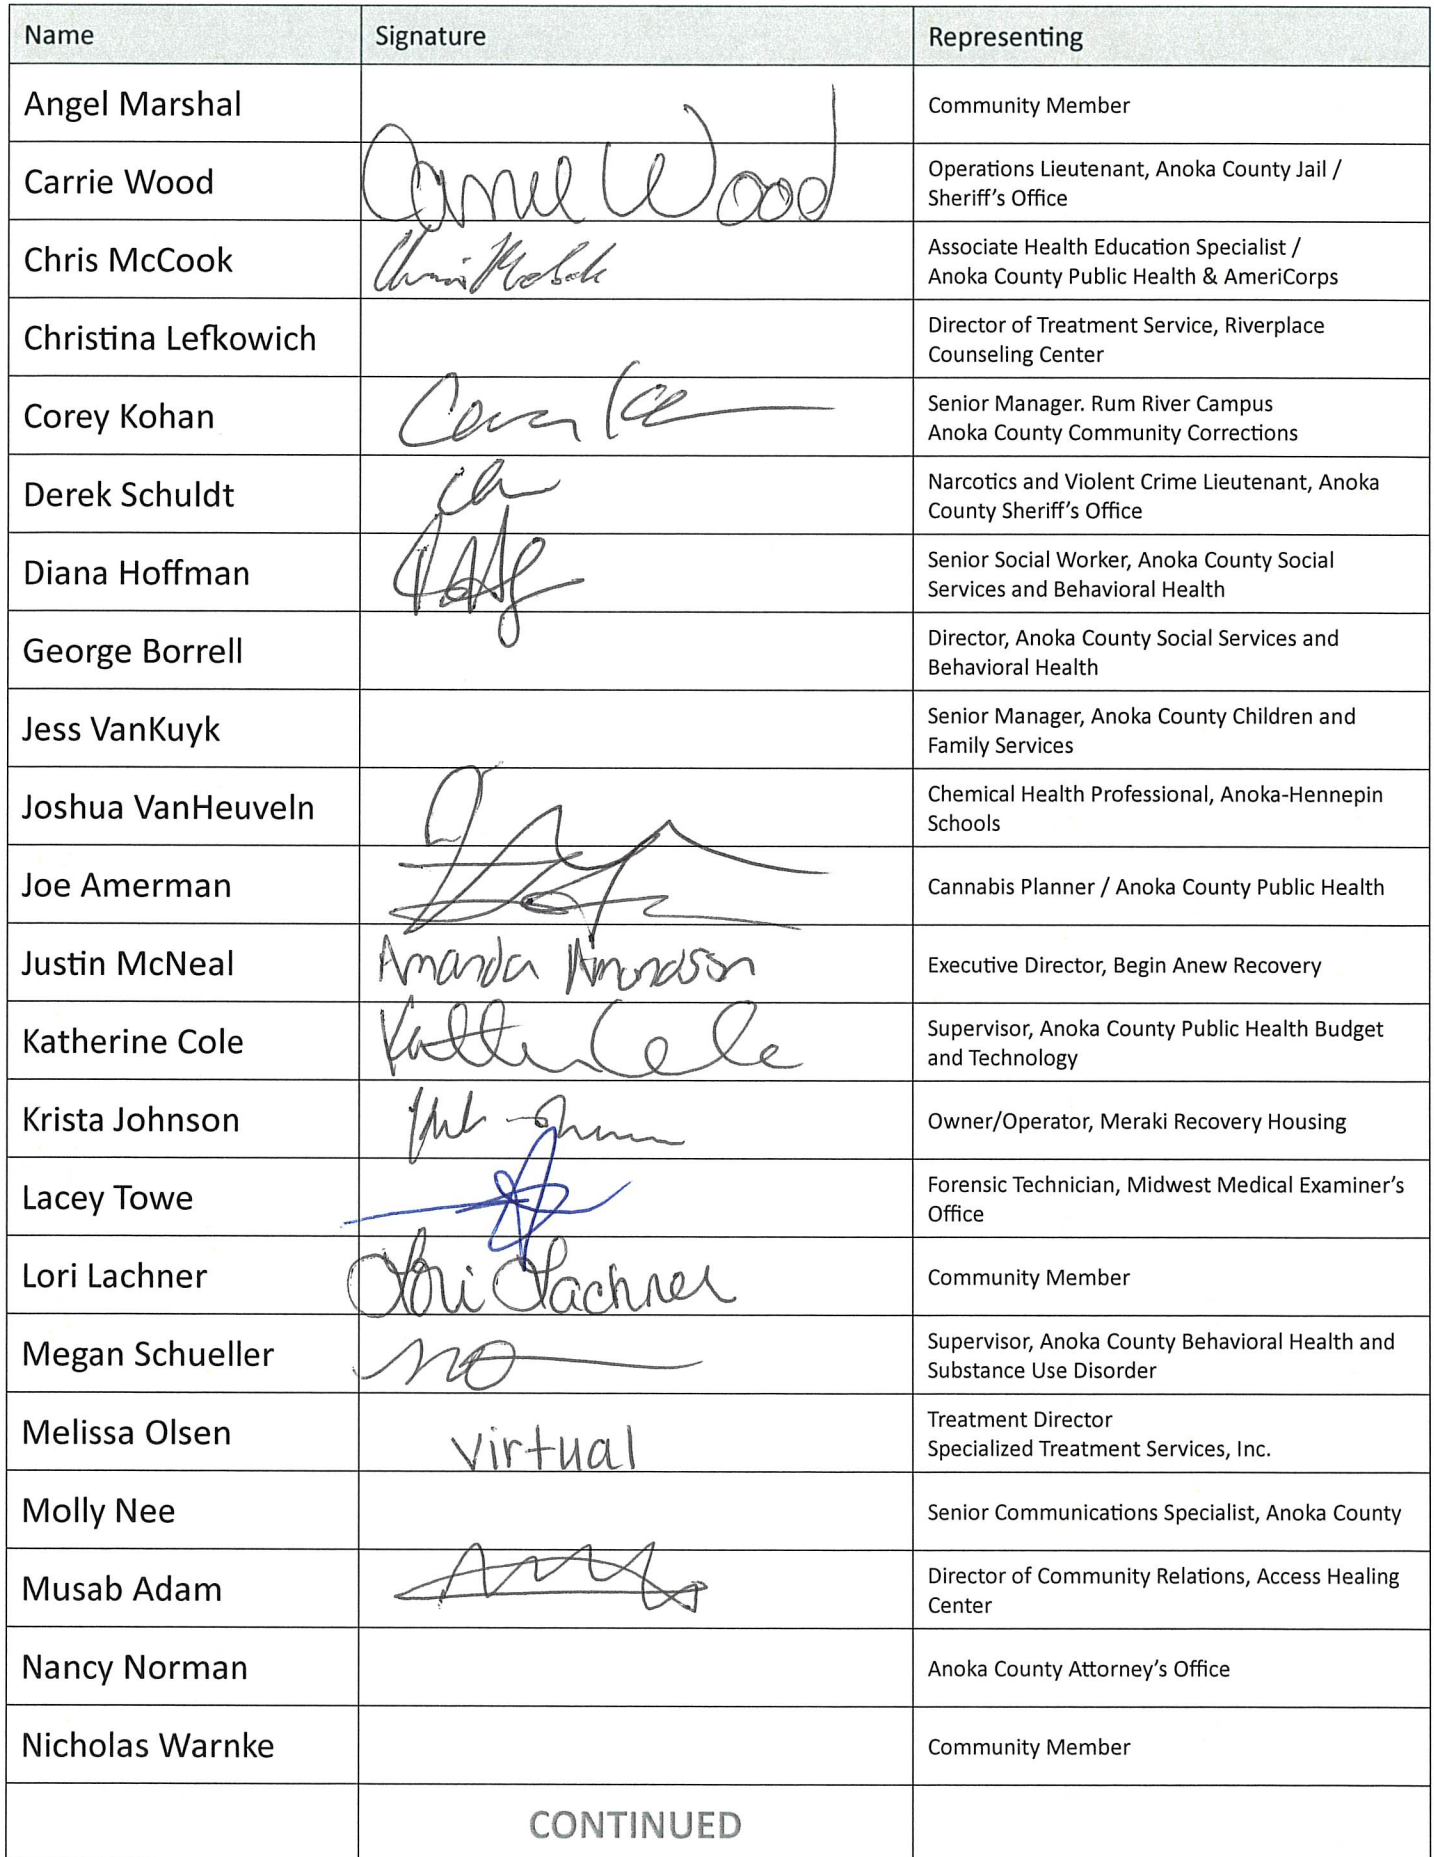 Name Signature Representing
Angel Marshal Community Member
Carrie Wood Carrie Wood Operations Lieutenant, Anoka County Jail /
Sheriff's Office
Chris McCook Associate Health Education Specialist /
Anoka County Public Health & AmeriCorps
Christina Lefkowich Director of Treatment Service, Riverplace
Counseling Center
Corey Kohan Senior Manager. Rum River Campus
Anoka County Community Corrections
Derek Schuldt Narcotics and Violent Crime Lieutenant, Anoka
County Sheriff's Office
Diana Hoffman Senior Social Worker, Anoka County Social
Services and Behavioral Health
George Borrell Director, Anoka County Social Services and
Behavioral Health
Jess VanKuyk Senior Manager, Anoka County Children and
Family Services
Joshua VanHeuveln Chemical Health Professional, Anoka-Hennepin
Schools
Joe Amerman Cannabis Planner / Anoka County Public Health
Justin McNeal Amanda Amundson Executive Director, Begin Anew Recovery
Katherine Cole Supervisor, Anoka County Public Health Budget
and Technology
Krista Johnson Owner/Operator, Meraki Recovery Housing
Lacey Towe Forensic Technician, Midwest Medical Examiner's
Office
Lori Lachner Lori Lachner Community Member
Megan Schueller Supervisor, Anoka County Behavioral Health and
Substance Use Disorder
Melissa Olsen virtual Treatment Director
Specialized Treatment Services, Inc.
Molly Nee Senior Communications Specialist, Anoka County
Musab Adam Director of Community Relations, Access Healing
Center
Nancy Norman Anoka County Attorney's Office
Nicholas Warnke Community Member
CONTINUED